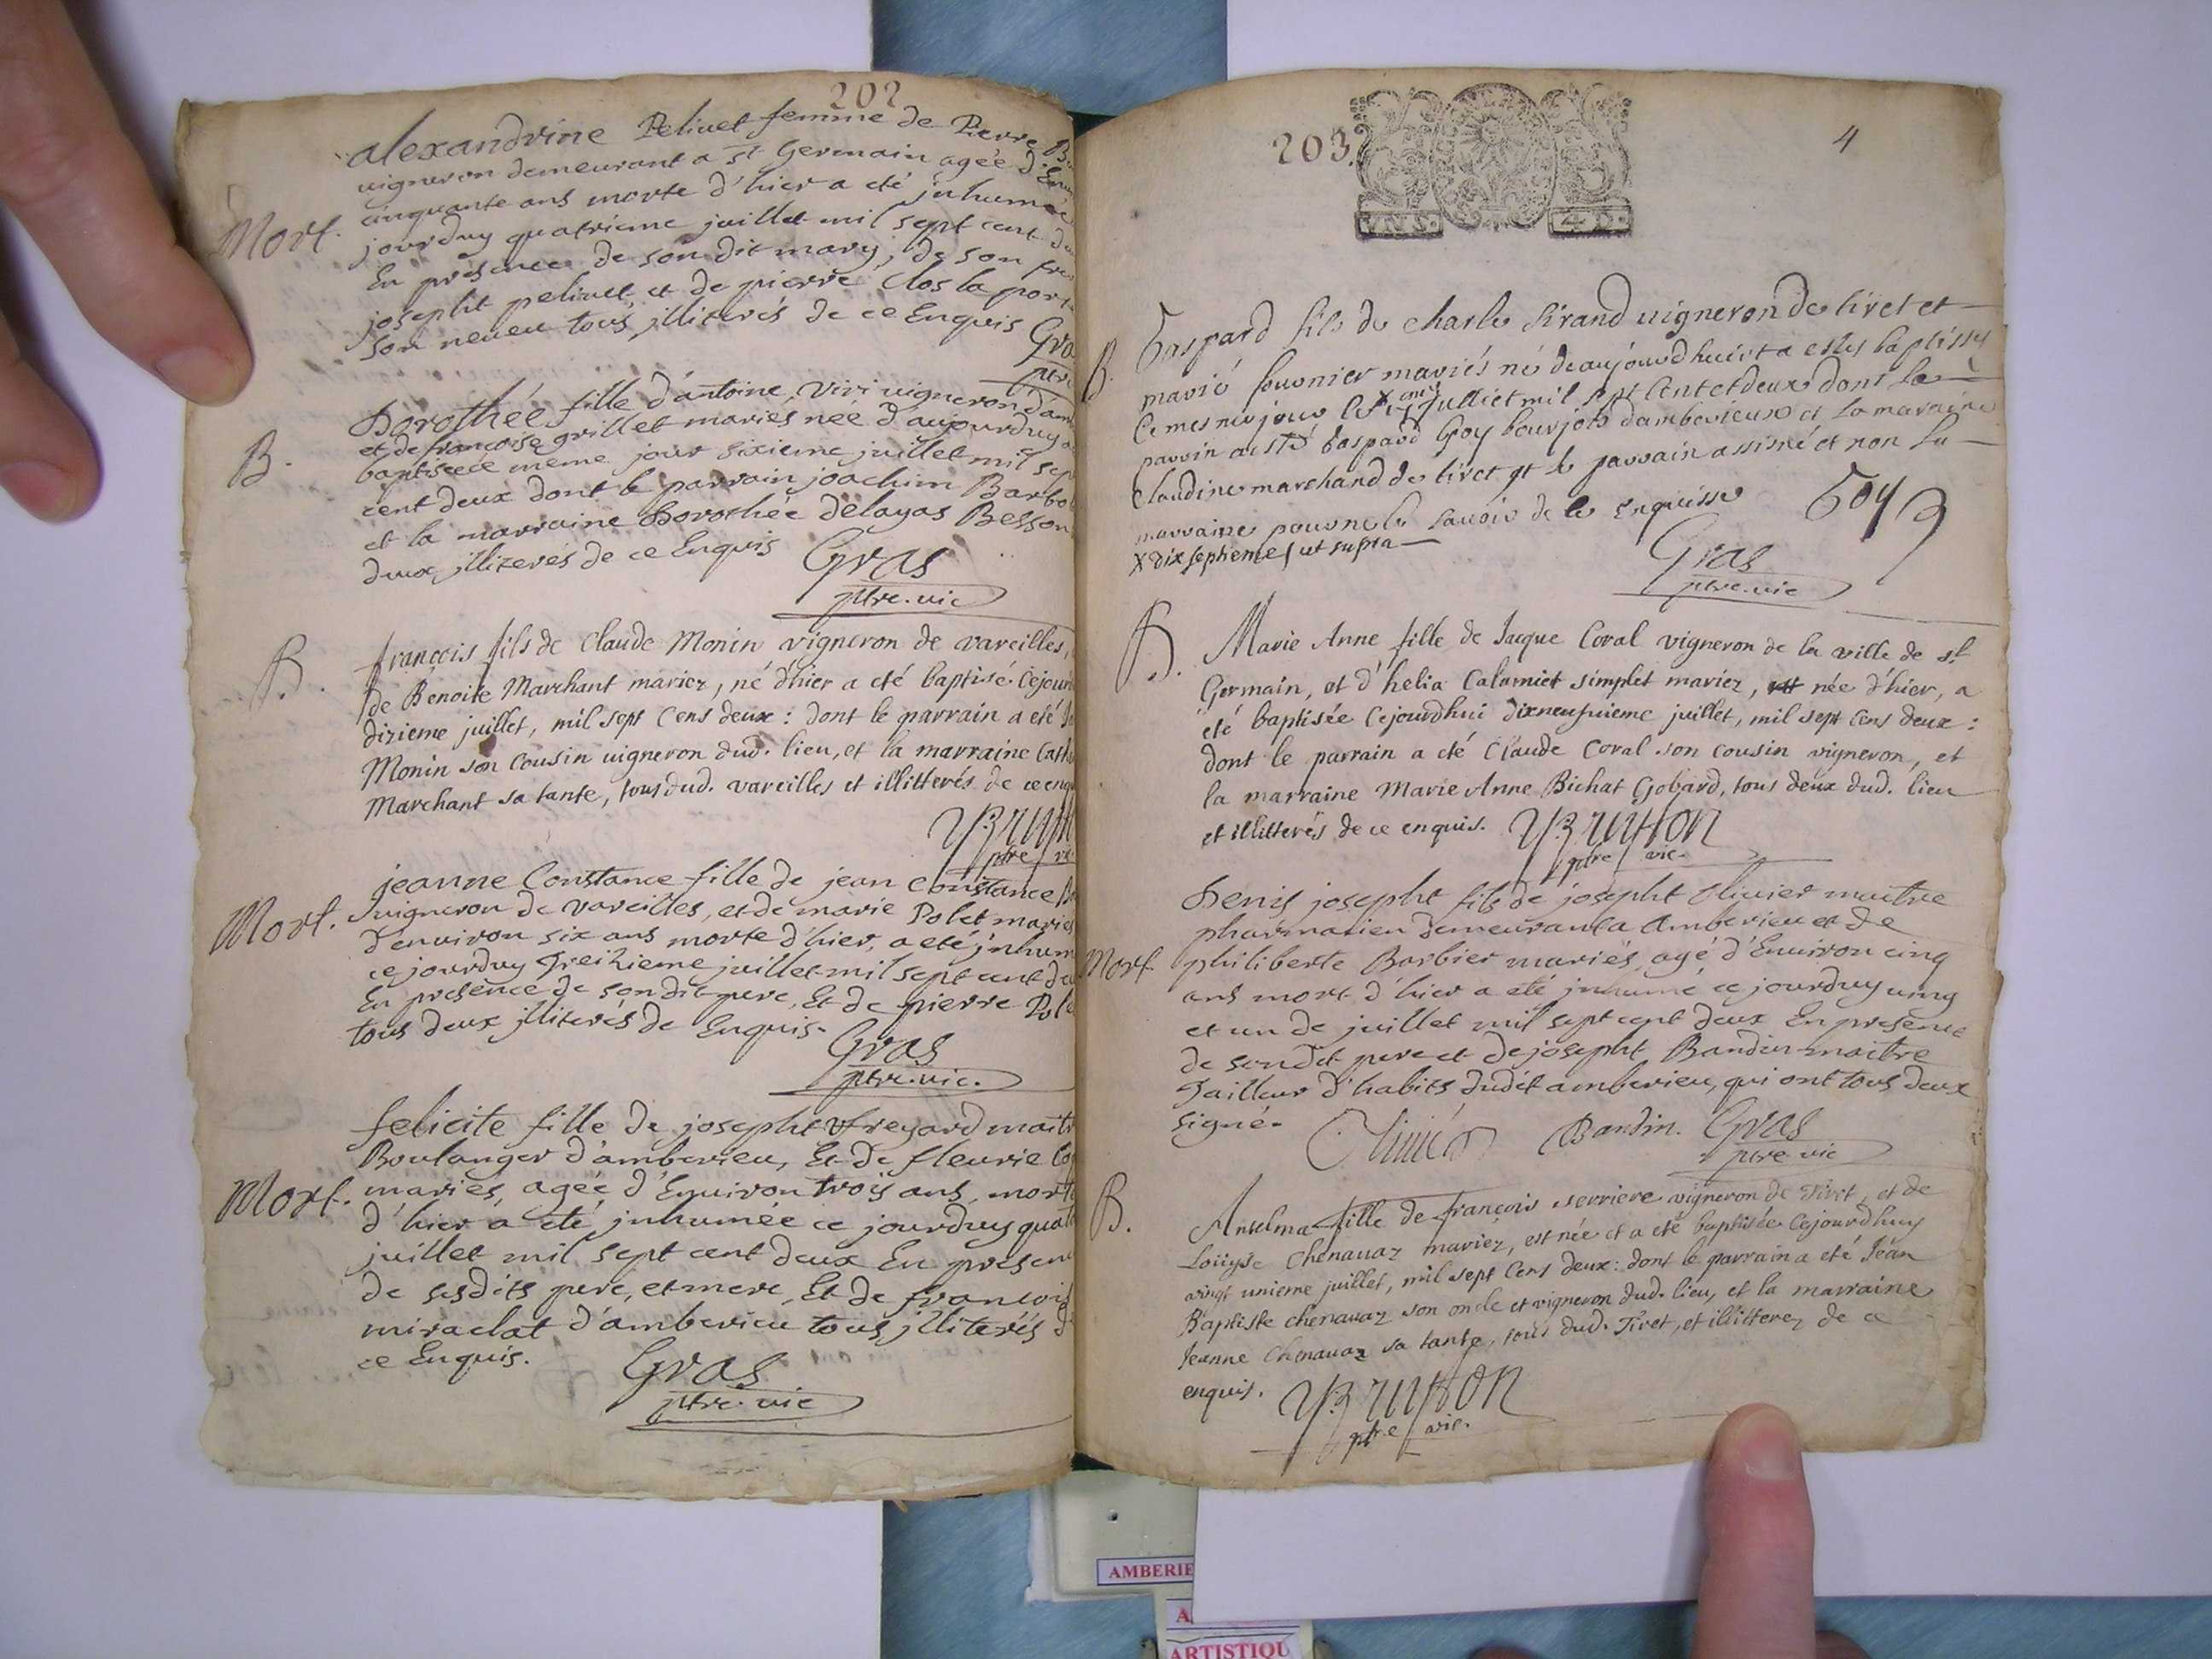 202
alexandrine Pelivet femme de Pierre
vigneron demeurant a St Germain agée d'
cinquante ans morte d'hier a eté inhumée
Mort.
jourduy quatrieme juillet mil sept cent
En presence de son dit mary, de son
josepht pelivet, et de pierre Clos la
son neveu tous jlliterés de ce Enquis
Dorothée fille d'antoine vivi vigneron
et de francoise grillet mariés née d'aujourduy
B.
baptisée ce meme jour sixieme juillet mil
cent deux dont le parrain joachim
et la marraine Dorothée delayas Besson
deux jlliterés de ce Enquis Gras
ptre. vic
B.
françois fils de Claude Monin vigneron de vareilles,
de Benoite Marchant mariez, né d'hier a eté baptisé
dixieme juillet, mil sept Cens deux : dont le parrain a eté
Monin son cousin vigneron dud. lieu, et la marraine
Marchant sa tante, tous dud. vareilles et illitterés de ce
ptre
jeanne Constance fille de jean Constance
Mort.
vigneron de vareilles, et de marie Polet mariés
d'environ six ans morte d'hier, a eté
ce jourduy Treizieme juillet mil sept cent
En presence de son dit pere, Et de pierre
tous deux jlliterés de Enquis.
Gras
ptre. vic.
felicite fille de josepht
Boulanger d'amberieu, Et de fleurie
Mort.
mariés, agée d'Environ trois ans,
d'hier a eté jnhumée ce jourduy
juillet mil sept cent deux En
de sesdits pere, et mere, Et de francois
miraclat d'amberieu tous jlliterés
ce Enquis.
Gras
ptre. vic
203.
4
B.
Gaspard fils de charle sirand vigneron de tiret et
marié fournier mariés né deaujourdhuict a estes baptisse
Ce mesme jour juillet mil sept Cent et deux dont Le
parrin a esté Gaspard Goy bourjois damberieux et La maraine
Claudine marchand de tiret qt le parrain assiné et non La
marraine pour ne le savoir de Ce Enquisse Goy
X dixseptieme ut supra
Gras
ptre. vic
B.
Marie Anne fille de Jacque Coral vigneron de la ville de St
Germain, et d'helia Calamiet simplet mariez, née d'hier, a
eté baptisée Cejourdhui dixneufuieme juillet, mil sept Cens deux :
dont le parrain a eté Claude Coral son cousin vigneron, et
la marraine Marie Anne Bichat Gobard, tous deux dud. lieu
et illitterés de ce enquis.
ptre vic.
Denis josepht fils de josepht Olivier maitre
pharmacien demeurant a Amberieu et de
Mort.
philiberte Barbier mariés, agé d'Environ cinq
ans mort d'hier a eté jnhumé ce jourduy uing
et un de juillet mil sept cent deux En presence
de sondit pere et de josepht Bandin maitre
Tailleur d'habits dudit amberieu, qui ont tous deux
signé.
Bandin. Gras
ptre vic
B.
Anselma fille de francois serriere vigneron de Tiret, et de
Loüyse Chenavaz mariez, est née et a eté baptisée Cejourdhuy
vingt unieme juillet, mil sept Cens deux : dont le parrain a eté Jean
Baptiste chenavaz son oncle et vigneron dud. lieu, et la marraine
Jeanne Chenavaz sa tante, tous dud. Tiret, et illitterez de ce
enquis.
ptre vic.
AMBERIE
A
ARTISTIQU